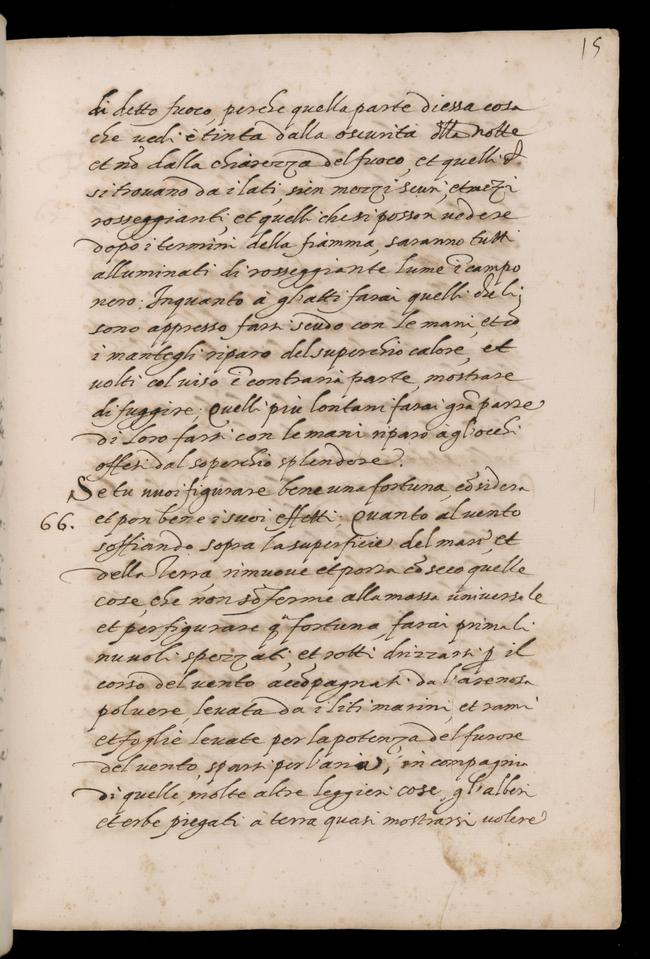 15
di detto fuoco, perche quella parte di essa cosa
che vedi è tinta dalla oscurità della notte
et nō dalla chiarezza del fuoco, et quelli
si trovano da i lati, sien mezzi scuri, et mezi
rosseggianti, et quelli che si posson vedere
dopo i termini della fiamma, saranno tutti
alluminati di rosseggiante lume ī campo
nero. Inquanto a gl'atti farai quelli che li
sono appresso farsi scudo con le mani, et cō
i mantegli riparo del superchio calore, et
volti col viso ī contraria parte, mostrare
di fuggire; Quelli più lontani farai grā parte
di loro farsi con le mani riparo a gl'occhi
offesi dal soperchio splendore.
Se tu vuoi figurare bene una fortuna, cōsidera
66. et pon bene i suoi effetti. Quanto al vento
soffiando sopra la superficie del mare et
della Terra, rimuove et porta cō seco quelle
cose, che non sō ferme alla massa universale
et per figurare q̄sta fortuna, farai prima li
nuvoli spezzati, et rotti drizzarsi ꝑ il
corso del vento accōpagnati da l'arenosa
polvere, levata da i liti marini, et rami
et foglie levate per la potenza del furore
del vento, sparsi per l'aria, in compagnia
di quelle, molte altre leggieri cose, gl'alberi
et erbe piegati a terra quasi mostrarsi volere